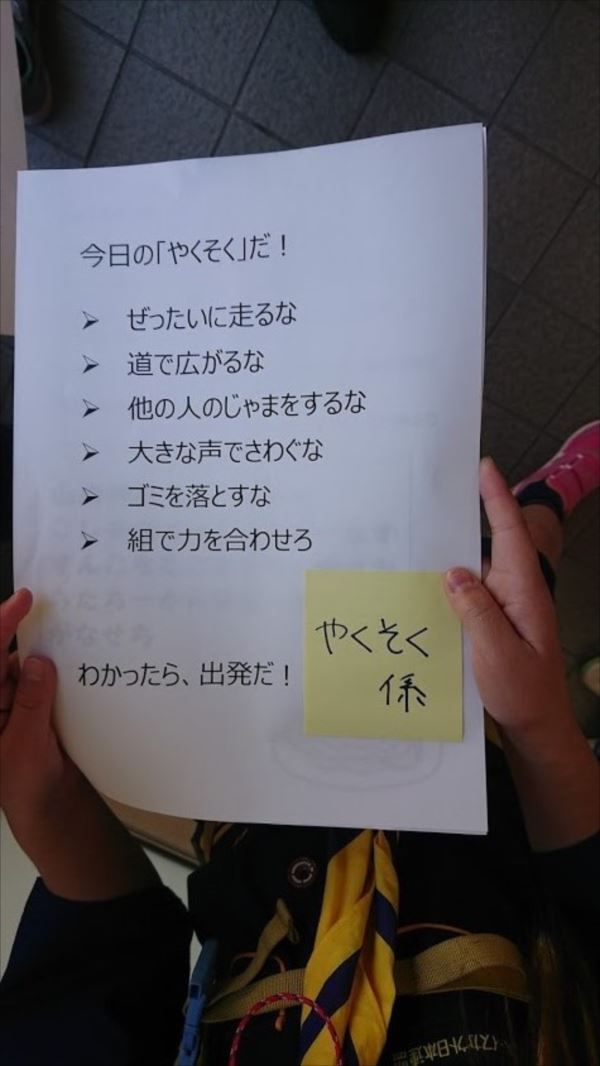 今日の「やくそく」だ！
➢ ぜったいに走るな
➢ 道で広がるな
➢ 他の人のじゃまをするな
➢ 大きな声でさわぐな
➢ ゴミを落とすな
➢ 組で力を合わせろ
わかったら、出発だ！
やくそく
係
イスカウト日本連